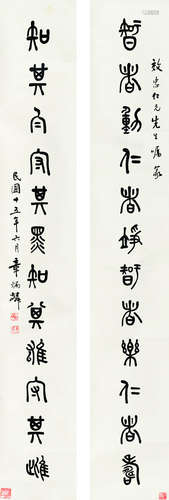 仁兄先生囑篆
智者動仁者竫智者樂仁者壽
知其白守其黑知其雄守其雌
民國十五年六月章炳麟